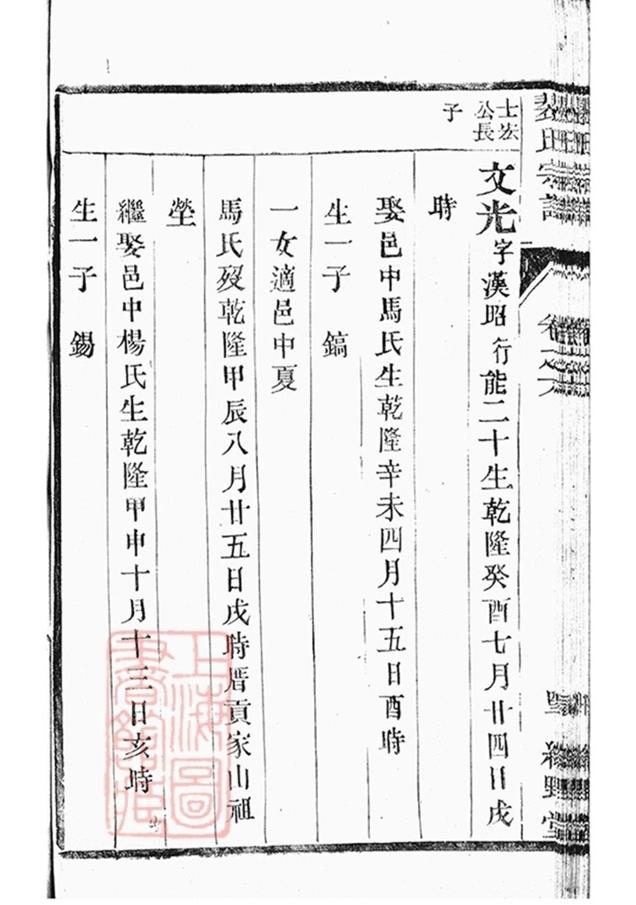 裴氏宗譜
卷之六
綠野堂
士宏
公長
子
文光字漢昭行能二十生乾隆癸酉七月廿四日戌
時
娶邑中馬氏生乾隆辛未四月十五日酉時
生一子 鎬
一女適邑中夏
馬氏歿乾隆甲辰八月廿五日戌時厝貢家山祖
塋
繼娶邑中楊氏生乾隆甲申十月十三日亥時
生一子 錫
上海圖
書館藏